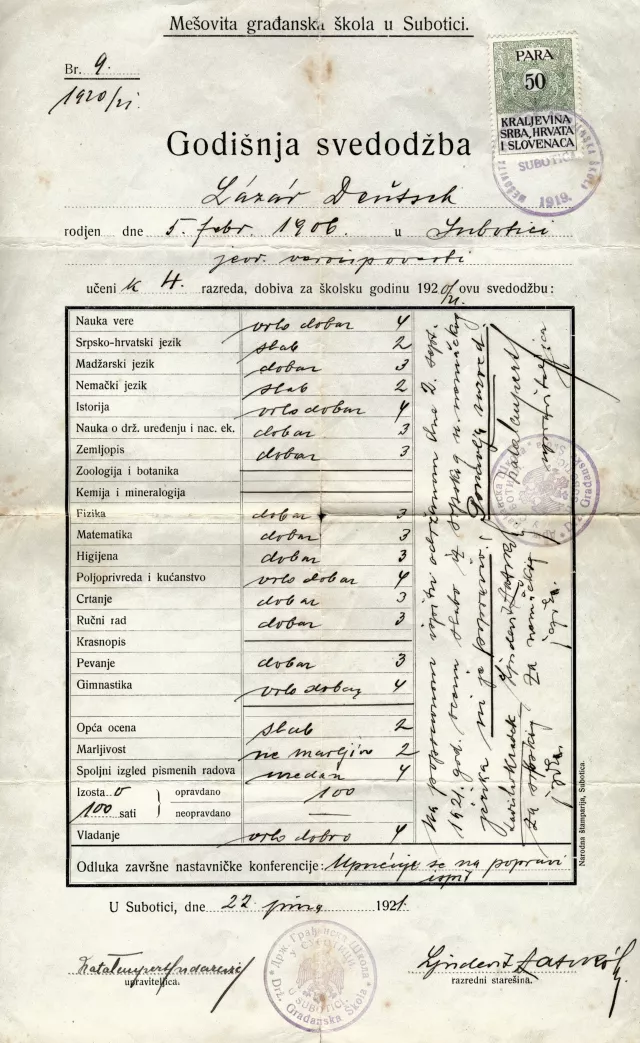 Mešovita građanska škola u Subotici.
Br. 9.
1920/21.
PARA
50
KRALJEVINA
SRBA, HRVATA
I SLOVENACA
SUBOTICI
1919.
Godišnja svedodžba
Lázár Deutsch
rodjen dne 5. febr. 1906. u Subotici
jevr. veroispovesti
učeni k 4. razreda, dobiva za školsku godinu 1920/21. ovu svedodžbu:
Nauka vere vrlo dobar 4
Srpsko-hrvatski jezik slab 2
Madžarski jezik dobar 3
Nemački jezik slab 2
Istorija vrlo dobar 4
Nauka o drž. uređenju i nac. ek. dobar 3
Zemljopis dobar 3
Zoologija i botanika
Kemija i mineralogija
Fizika dobar 3
Matematika dobar 3
Higijena dobar 3
Poljoprivreda i kućanstvo vrlo dobar 4
Crtanje dobar 3
Ručni rad dobar 3
Krasnopis
Pevanje dobar 3
Gimnastika vrlo dobar 4
Opća ocena slab 2
Marljivost ne marljiv 2
Spoljni izgled pismenih radova uredan 4
Izosta o
100 sati
opravdano 100
neopravdano —
Vladanje vrlo dobro 4
Odluka završne nastavničke konferencije: Upućuje se na popravni
ispit
Na popravnom ispitu održanom dne 2. sept.
1921. god. ocenu slabo iz srpskog i nemačkog
jezika ni je popravio. Ponavlja razred.
Ljudevit
za srpski za nemački
jezik. jezik.
upraviteljica
Narodna štamparija, Subotica.
U Subotici, dne 22 juna 1921.
upraviteljica.
Држ. Грађанска Школа
у Суботици
U SUBOTICI
Drž. Građanska Škola
Ljudevit
razredni starešina.